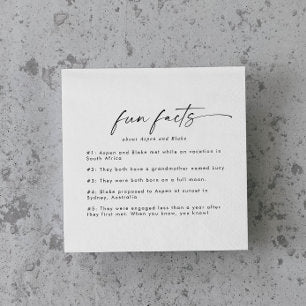 fun facts
about Aspen and Blake
#1: Aspen and Blake met while on vacation in
South Africa
#2: They both have a grandmother named Lucy.
#3: They were both born on a full moon.
#4: Blake proposed to Aspen at sunset in
Sydney, Australia
#5: They were engaged less than a year after
they first met. When you know, you know!